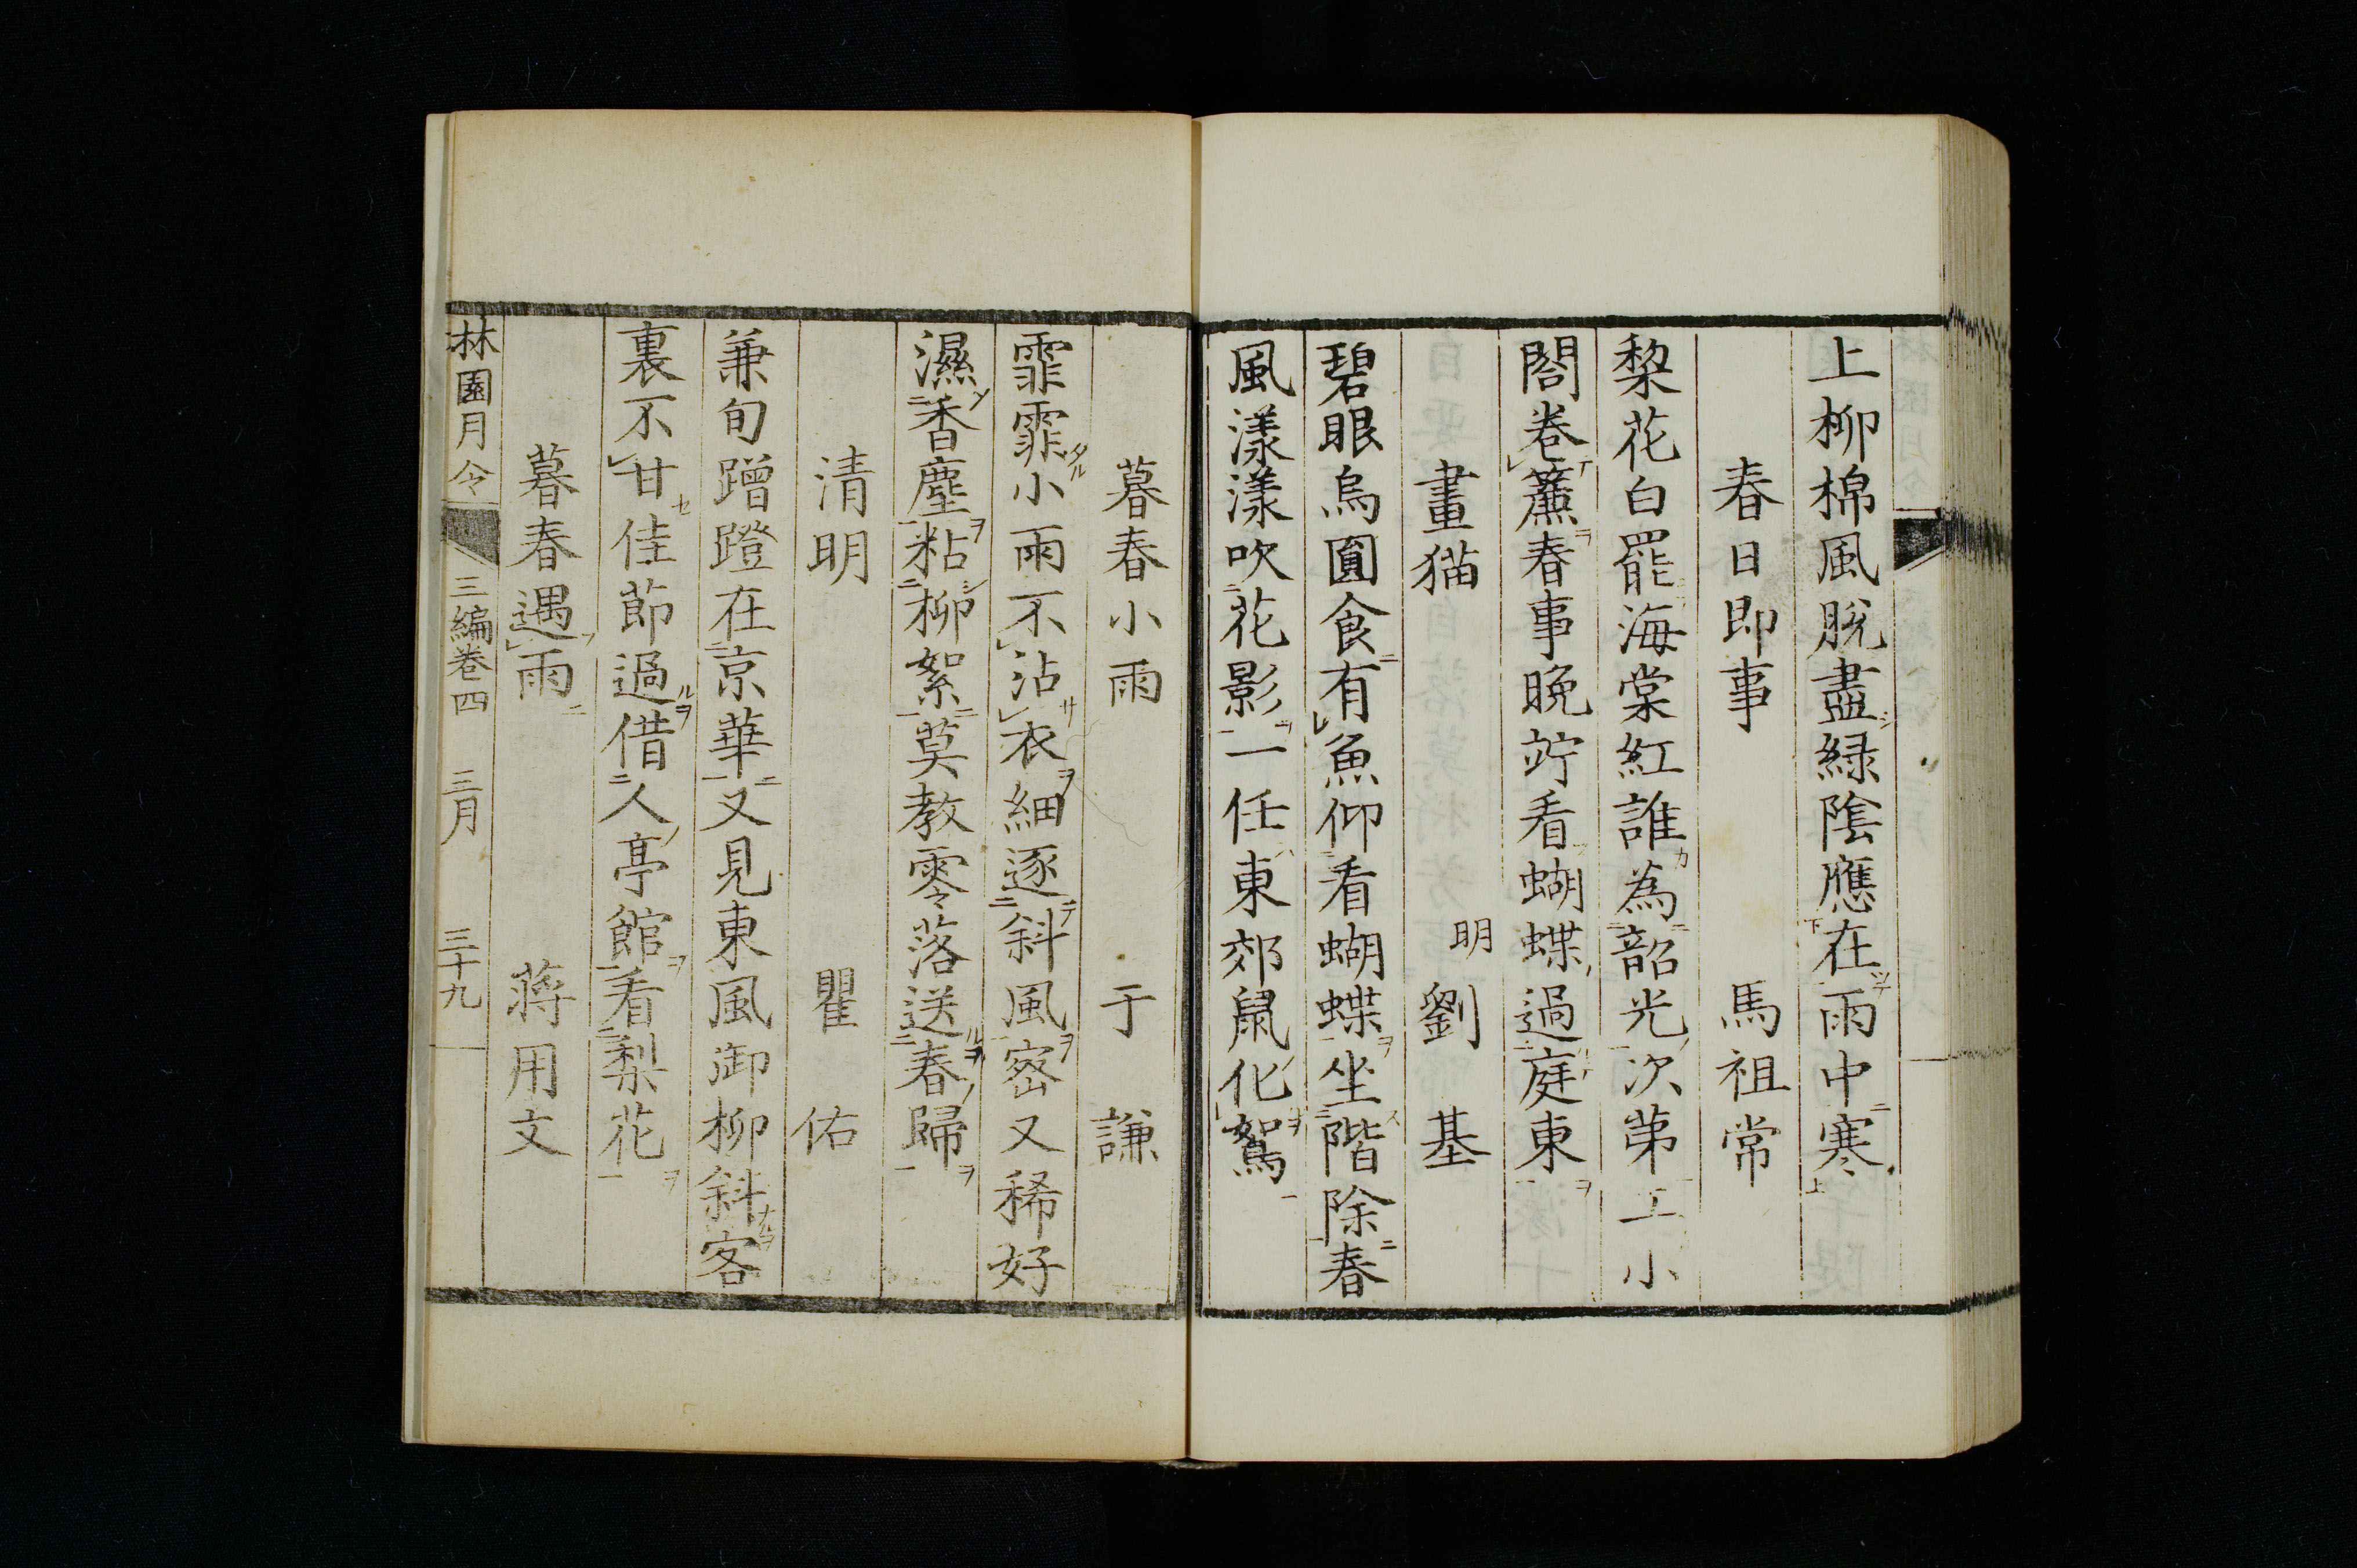 上柳棉風脫盡綠陰應在雨中寒
春日即事　馬祖常
梨花白罷海棠紅誰為韶光次第工小
閤卷簾春事晚竚看蝴蝶過庭東
畫猫　明　劉基
碧眼烏圓食有魚仰看蝴蝶坐階除春
風漾漾吹花影一任東郊鼠化鴽
暮春小雨　于謙
霏霏小雨不沾衣細逐斜風密又稀好
濕香塵粘柳絮莫教零落送春歸
清明　瞿佑
兼旬蹭蹬在京華又見東風御柳斜客
裏不甘佳節過借人亭館看梨花
暮春遇雨　蔣用文
林園月令　三編卷四　三月　三十九